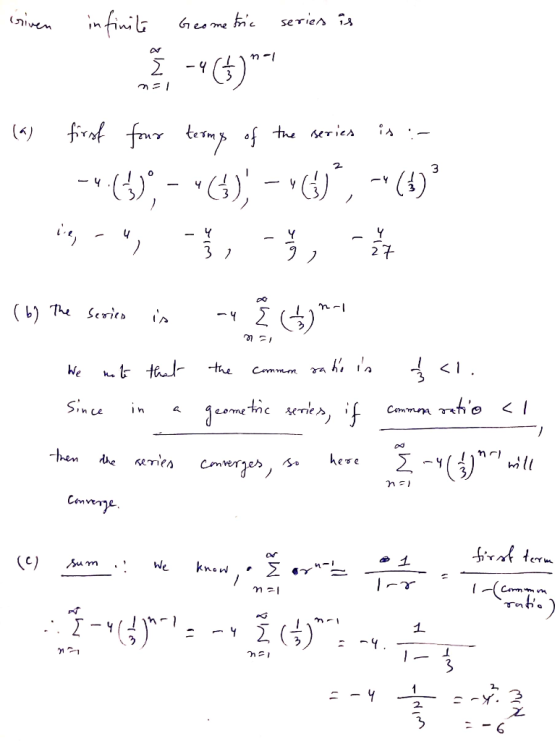 Given infinite Geometric series is
∞ Σ n=1 -4(1/3)^n-1
(a) first four terms of the series is :-
-4.(1/3)^0, -4(1/3)^1, -4(1/3)^2, -4(1/3)^3
i.e, -4, -4/3, -4/9, -4/27
(b) The series is -4 ∞ Σ n=1 (1/3)^n-1
We note that the common ratio is 1/3 <1.
Since in a geometric series, if common ratio <1,
then the series converges, so here ∞ Σ n=1 -4(1/3)^n-1 will
Converge.
(c) sum :: We know, ∞ Σ n=1 r^n-1 = 1/1-r = first term/1-(common ratio)
∴ ∞ Σ n=1 -4(1/3)^n-1 = -4 ∞ Σ n=1 (1/3)^n-1 = -4. 1/1-1/3
= -4 1/2/3 = -4^2. 3/2
= -6